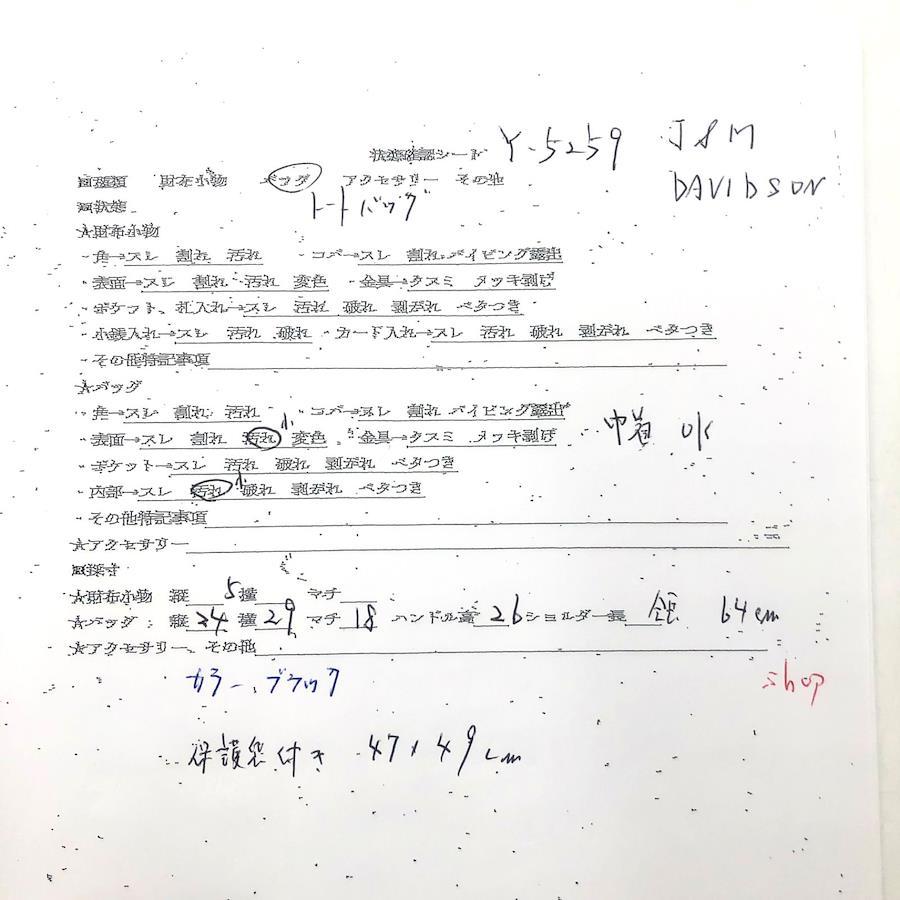 状態確認シート Y-5259 J&M
DAVIDSON
■種類 財布小物 バッグ アクセサリー その他
トートバッグ
■状態
★財布小物
・角→スレ 割れ 汚れ ・コバ→スレ 割れ パイピング露出
・表面→スレ 割れ 汚れ 変色 ・金具→クスミ メッキ剥げ
・ポケット、札入れ→スレ 汚れ 破れ 剥がれ ベタつき
・小銭入れ→スレ 汚れ 破れ ・カード入れ→スレ 汚れ 破れ 剥がれ ベタつき
・その他特記事項
★バッグ
・角→スレ 割れ 汚れ ・コバ→スレ 割れ パイピング露出
・表面→スレ 割れ 汚れ 小 変色 ・金具→クスミ メッキ剥げ 巾着 OK
・ポケット→スレ 汚れ 破れ 剥がれ ベタつき
・内部→スレ 汚れ 小 破れ 剥がれ ベタつき
・その他特記事項
★アクセサリー
■採寸
★財布小物 縦 横 マチ
★バッグ: 縦 横 29 マチ 18 ハンドル高 26 ショルダー長 64cm
★アクセサリー、その他
カラー、ブラック shop
保護袋付き 47×49cm